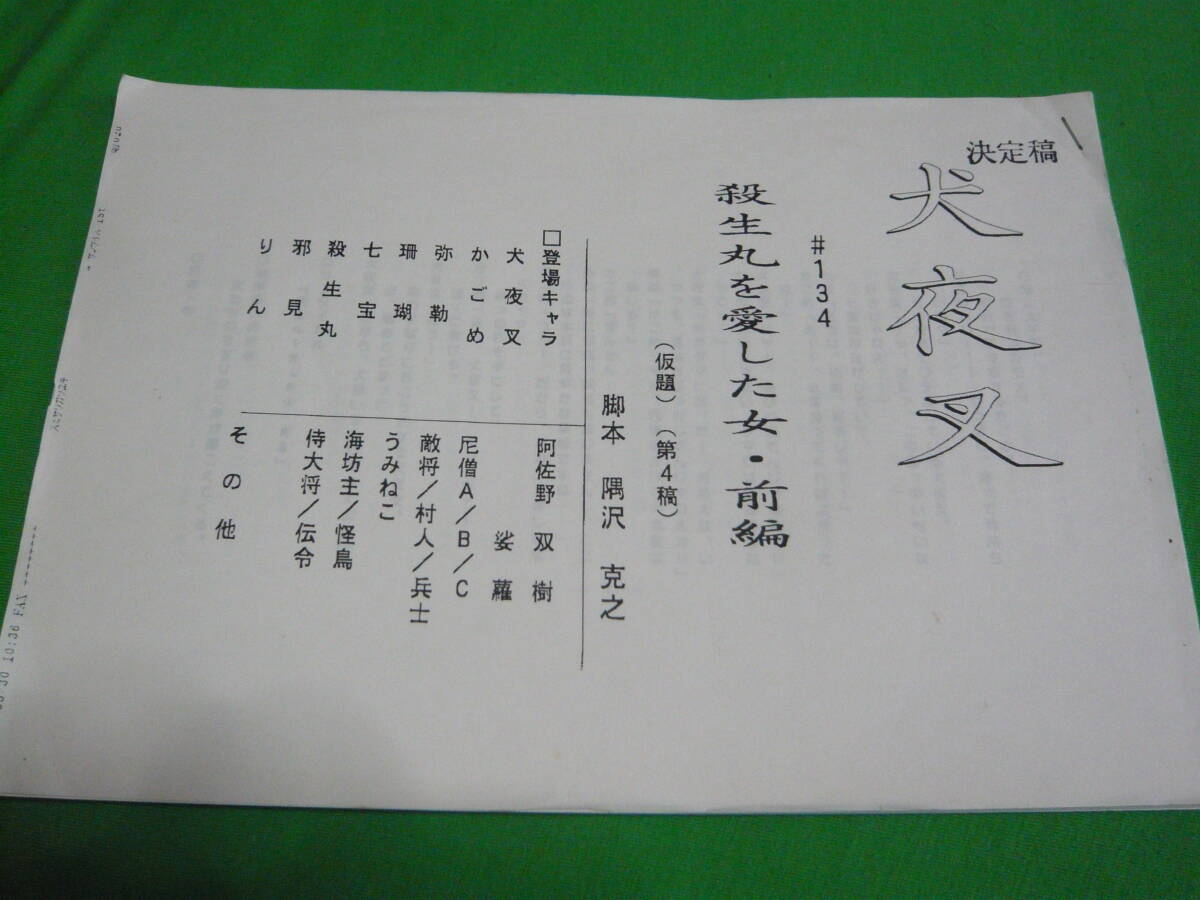 決定稿
犬夜叉
#134
殺生丸を愛した女・前編
(仮題)(第4稿)
脚本 隅沢 克之
□登場キャラ
犬夜叉
かごめ
弥勒
珊瑚
七宝
殺生丸
邪見
りん
阿佐野 双樹
娑蘿
尼僧A/B/C
敵将/村人/兵士
うみねこ
海坊主/怪鳥
侍大将/伝令
その他
10:36 FAX